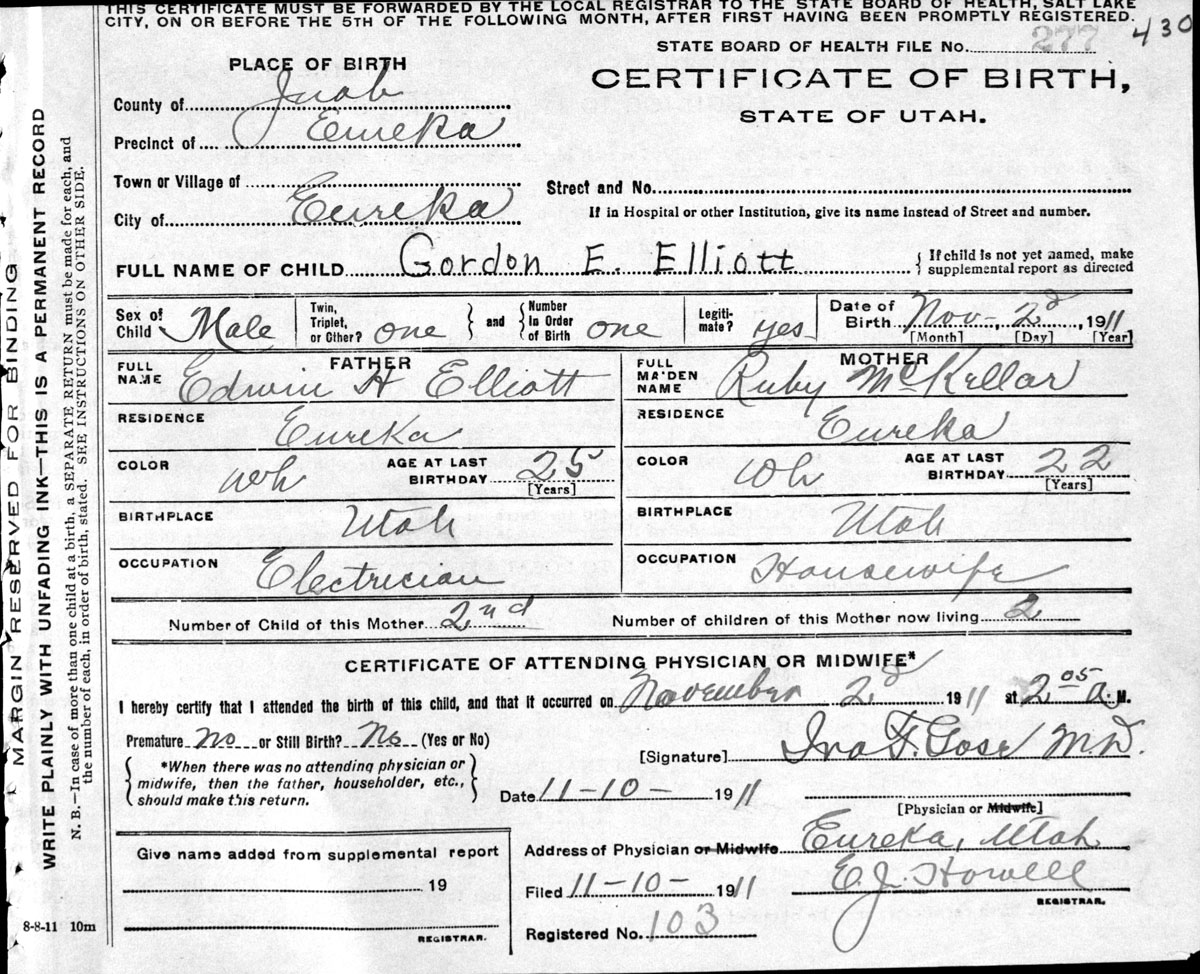 THIS CERTIFICATE MUST BE FORWARDED BY THE LOCAL REGISTRAR TO THE STATE BOARD OF HEALTH, SALT LAKE
CITY, ON OR BEFORE THE 5TH OF THE FOLLOWING MONTH, AFTER FIRST HAVING BEEN PROMPTLY REGISTERED.
430
STATE BOARD OF HEALTH FILE No. 277
PLACE OF BIRTH
CERTIFICATE OF BIRTH,
STATE OF UTAH.
County of Juab
Precinct of Eureka
Town or Village of
Street and No.
City of Eureka
If in Hospital or other Institution, give its name Instead of Street and number.
FULL NAME OF CHILD Gordon E. Elliott
If child is not yet named, make
supplemental report as directed
Sex of Child Male
Twin, Triplet, or Other? one
and
Number In Order of Birth one
Legiti-mate? yes
Date of Birth Nov- 2d, 1911
[Month] [Day] [Year]
FATHER
FULL NAME Edwin H Elliott
RESIDENCE Eureka
COLOR Wh AGE AT LAST BIRTHDAY 25
[Years]
BIRTHPLACE Utah
OCCUPATION Electrician
MOTHER
FULL MAIDEN NAME Ruby McKellar
RESIDENCE Eureka
COLOR Wh AGE AT LAST BIRTHDAY 22
[Years]
BIRTHPLACE Utah
OCCUPATION Housewife
Number of Child of this Mother 2nd Number of children of this Mother now living 2
CERTIFICATE OF ATTENDING PHYSICIAN OR MIDWIFE*
I hereby certify that I attended the birth of this child, and that it occurred on November 2d 1911 at 2 05 a M.
Premature No or Still Birth? No (Yes or No)
[Signature] M.D.
*When there was no attending physician or
midwife, then the father, householder, etc.,
should make this return.
Date 11-10- 1911
[Physician or Midwife]
Give name added from supplemental report
19
REGISTRAR.
Address of Physician or Midwife Eureka, Utah
Filed 11-10- 1911 E.J. Howell
REGISTRAR.
Registered No. 103
8-8-11 10m
MARGIN RESERVED FOR BINDING
WRITE PLAINLY WITH UNFADING INK—THIS IS A PERMANENT RECORD
N. B.—In case of more than one child at a birth, a SEPARATE RETURN must be made for each, and
the number of each, in order of birth, stated. SEE INSTRUCTIONS ON OTHER SIDE.